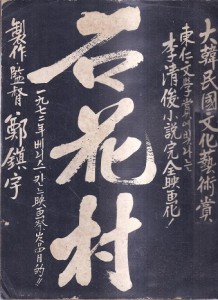 大韓民國文化藝術賞
東仁文學賞에 빛나는
李清俊小說完全映画化!
石花村
一九七二年 베니스 칸느 映画祭 目的!!
製作監督 鄭鎮宇